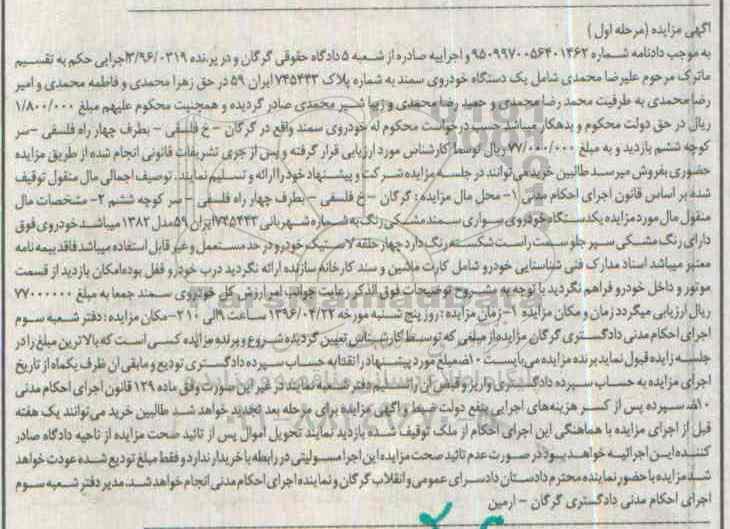 آگهی مزایده (مرحله اول)
به موجب دادنامه شماره ۹۵۰۹۹۷۰۰۵۶۴۰۱۴۶۲ و اجراییه صادره از شعبه ۵ دادگاه حقوقی گرگان و در پرونده ۳/۹۶/۰۳۱۹اجرایی حکم به تقسیم
ماترک مرحوم علیرضا محمدی شامل یک دستگاه خودروی سمند به شماره پلاک ۷۴۵۴۴۳ ایران ۵۹ در حق زهرا محمدی و فاطمه محمدی و امیر
رضا محمدی به طرفیت محمد رضا محمدی و حمید رضا محمدی و زیبا شیر محمدی صادر گردیده و همچنیت محکوم علیهم مبلغ ۱/۸۰۰/۰۰۰
ریال در حق دولت محکوم و بدهکار میباشد حسب درخواست محکوم له خودروی سمند واقع در گرگان – خ فلسفی – بطرف چهار راه فلسفی –سر
کوچه ششم بازدید و به مبلغ ۷۷/۰۰۰/۰۰۰ریال توسط کارشناس مورد ارزیابی قرار گرفته و پس از جری تشریفات قانونی انجام شده از طریق مزایده
حضوری بفروش میرسد طالبین خرید می توانند در جلسه مزایده شرکت و پیشنهاد خود را ارائه و تسلیم نمایند. توصیف اجمالی مال منقول توقیف
شده بر اساس قانون اجرای احکام مدنی ۱– محل مال مزایده : گرگان – خ فلسفی – بطرف چهار راه فلسفی – سر کوچه ششم ۲– مشخصات مال
منقول مال مورد مزایده یکدستگاه خودروی سواری سمند مشکی رنگ به شماره شهربانی ۷۴۵۴۴۳ایران ۵۹مدل ۱۳۸۲ میباشد خودروی فوق
دارای رنگ مشکی سپر جلو سمت راست شکسته رنگ دارد چهار حلقه لاستیک خودرو در حد مستعمل و غیر قابل استفاده میباشد فاقد بیمه نامه
معتبر میباشد اسناد مدارک فنی شناسایی خودرو شامل کارت ماشین و سند کارخانه سازنده ارائه نگردید درب خودرو قفل بوده امکان بازدید از قسمت
موتور و داخل خودرو فراهم نگردید با توجه به مشروح توضیحات فوق الذکر رعایت جوانب امر ارزش کل خودروی سمند جمعا به مبلغ ۷۷۰۰۰۰۰۰
ریال ارزیابی میگردد زمان و مکان مزایده ۱– زمان مزایده : روز پنج شنبه مورخه ۱۳۹۶/۰۴/۲۲ ساعت ۹الی ۱۰ ۲–مکان مزایده : دفتر شعبه سوم
اجرای احکام مدنی دادگستری گرگان مزایده از مبلغی که توسط کارشناس تعیین گردیده شروع و برنده مزایده کسی است که بالاترین مبلغ را در
جلسه مزایده قبول نماید برنده مزایده می بایست ۱۰٪ مبلغ مورد پیشنهاد را نقدا به حساب سپرده دادگستری تودیع و مابقی آن ظرف یکماه از تاریخ
اجرای مزایده به حساب سپرده دادگستری واریز و قبض آن را تسلیم دفتر شعبه نمایند در غیر این صورت وفق ماده ۱۲۹ قانون اجرای احکام مدنی
۱۰٪ سپرده پس از کسر هزینه های اجرایی بنفع دولت ضبط و آگهی مزایده برای مرحله بعد تجدید خواهد شد طالبین خرید می توانند یک هفته
قبل از اجرای مزایده با هماهنگی این اجرای احکام از ملک توقیف شده بازدید نمایند تحویل اموال پس از تائید صحت مزایده از ناحیه دادگاه صادر
کننده این اجرائیه خواهد بود در صورت عدم تائید صحت مزایده این اجرا مسولیتی در رابطه با خریدار ندارد و فقط مبلغ تودیع شده عودت خواهد
شد مزایده با حضور نماینده محترم دادستان دادسرای عمومی و انقلاب گرگان و نماینده اجرای احکام مدنی انجام خواهد شد. مدیر دفتر شعبه سوم
اجرای احکام مدنی دادگستری گرگان – ارمین